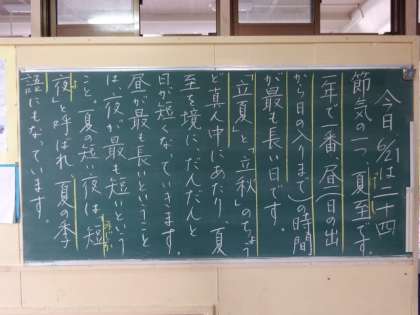 今日6/21は二十四
節気の一つ、夏至です。
一年で一番、昼(日の出
から日の入りまで)の時間
が最も長い日です。
「立夏」と「立秋」のちょう
ど真ん中にあたり、夏
至を境に、だんだんと
日が短くなっていきます。
昼が最も長いということ
は、夜が最も短いという
こと。夏の短い夜は「短
夜」と呼ばれ、夏の季
語にもなっています。